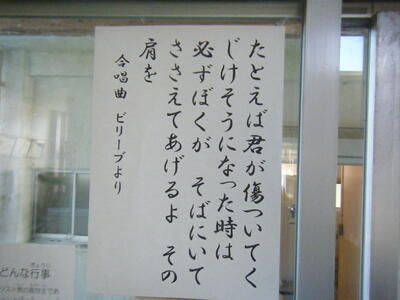 たとえば君が傷ついてく
じけそうになった時は
必ずぼくが そばにいて
ささえてあげるよ その
肩を
合唱曲 ビリーブより
どんな行事
ぎょうじ